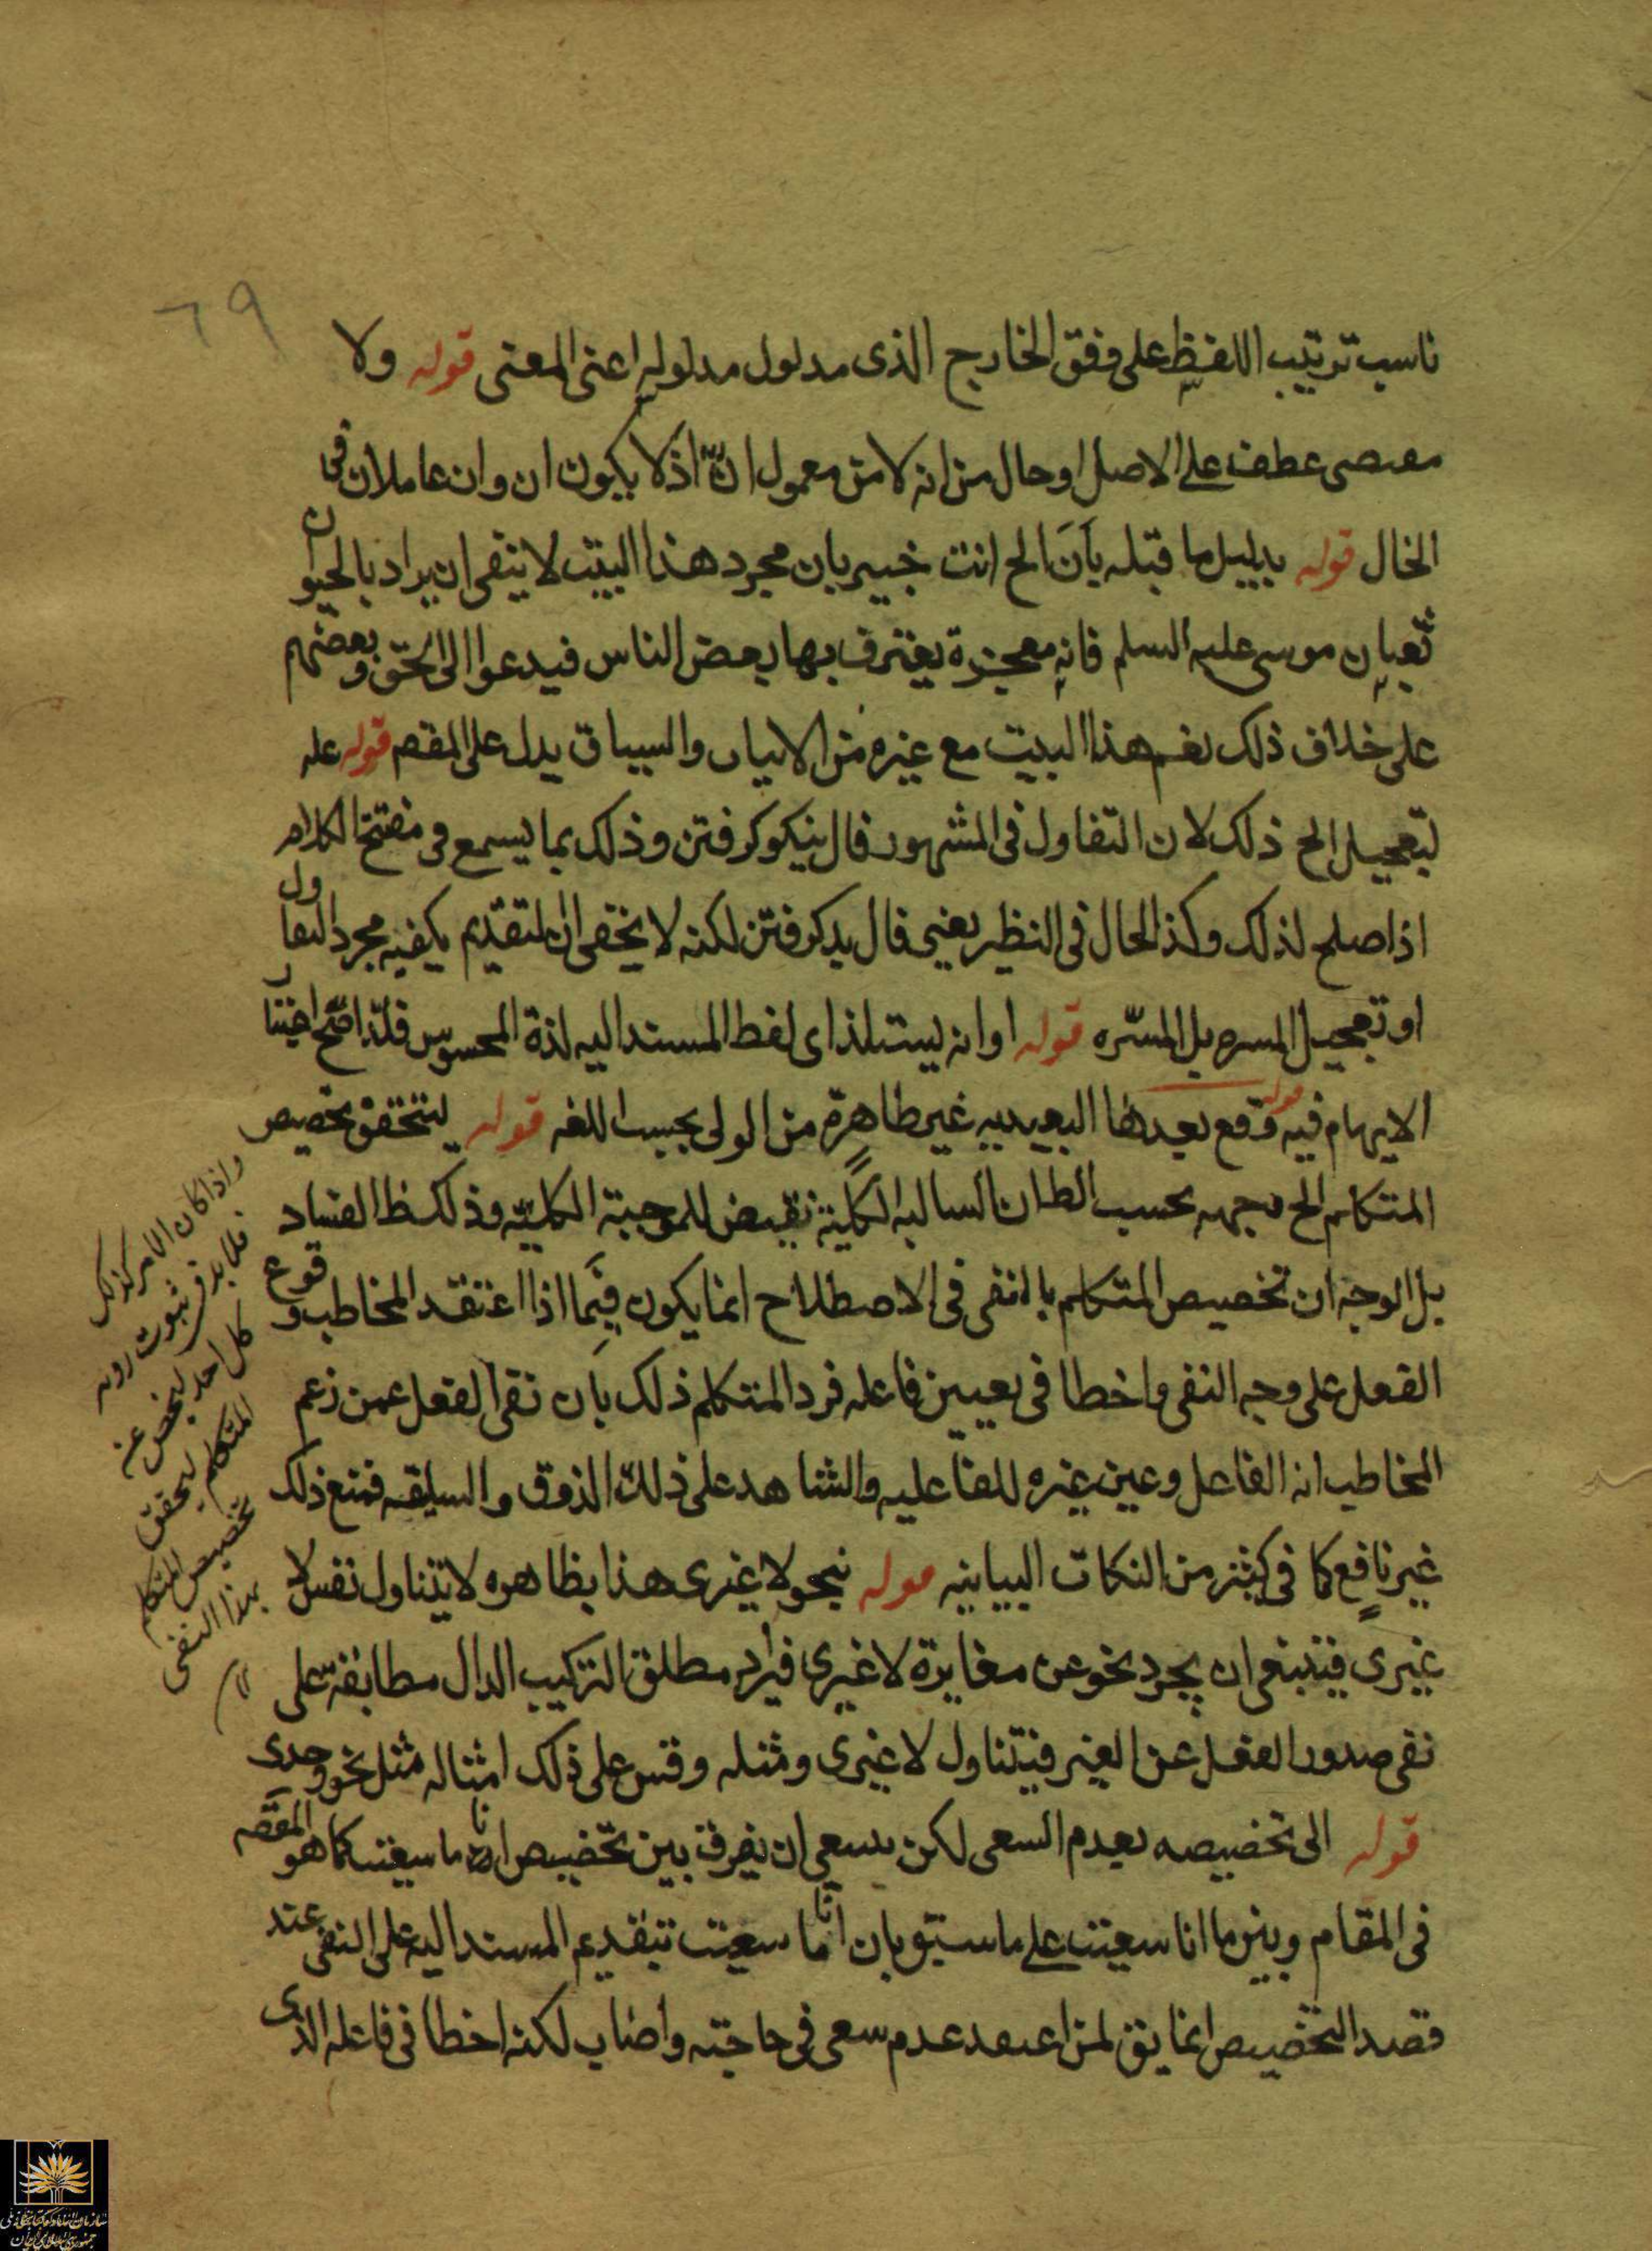 ٦٩
ناسب ترتيب اللفظ على وفق الخارج الذى مدلول مدلوله اعنى المعنى قوله ولا
مقتضى عطف على الاصل او حال من انه لا من معمول انّ اذ لا يكون ان وان عاملان فى
الحال قوله بدليل ما قبله بان الخ انت خبير بان مجرد هذا البيت لا ينفى ان يراد بالحيوان
ثعبان موسى عليه السلم فانه معجزة يعترف بها بعض الناس فيدعوا الى الحق وبعضهم
على خلاف ذلك نعم هذا البيت مع غيره من الابيات والسياق يدل على المقص قوله عله
لتعجيل الخ ذلك لان التفاول فى المشهور فال نيكو كرفتن وذلك بما يسمع فى مفتتح الكلام
اذا صلح لذلك وكذا الحال فى النظير يعنى فال بد كرفتن لكنه لا يخفى ان التقديم يكفيه مجرد التفاول
او تعجيل المسره بل المسرّه قوله او انه يستلذ اى لفظ المسند اليه لذة المحسوس
الايهام فيه قوله وقع بعدها البعيديه غير ظاهرة من الولى بحسب اللغه قوله ليتحقق تخصيص
المتكلم الخ وجهه بحسب الظ ان السالبه الكلية نقيض للموجبة الكليّة وذلك ظ الفساد
بل الوجه ان تخصيص المتكلم بالنفى فى الاصطلاح انما يكون فيما اذا اعتقد المخاطب وقوع
الفعل على وجه النفى واخطا فى تعيين فاعله فرد المتكلم ذلك بان نفى الفعل عمن زعم
المخاطب انه الفاعل وعين غيره للفاعليه والشاهد على ذلك الذوق والسليقه فمنع ذلك
غير نافع كما فى كثير من النكات البيانيه قوله نحو لا غيرى هذا بظاهره لا يتناول نفس لا
غيرى فينبغى ان يجرد نحو عن مغايرة لا غيرى فيراد مطلق التركيب الدال مطابقة على
نفى صدور الفعل عن الغير فيتناول لا غيرى ومثله وقس على ذلك امثاله مثل نحو وحدى
قوله الى تخصيصه بعدم السعى لكن ينبغى ان يفرق بين تخصيص انا ما سعيت كما هو المقص
فى المقام وبين ما انا سعيت على ما سيق بان انا ما سعيت بتقديم المسند اليه على النفى عند
قصد التخصيص انما يق لمن اعتقد عدم سعى فى حاجته واصاب لكنه اخطا فى فاعله الذى
واذا كان الامر كذلك
فلا بد فى ثبوت رويه
كل احد
المتكلم ليتحقق
تخصيص المتكلم
بهذا النفى